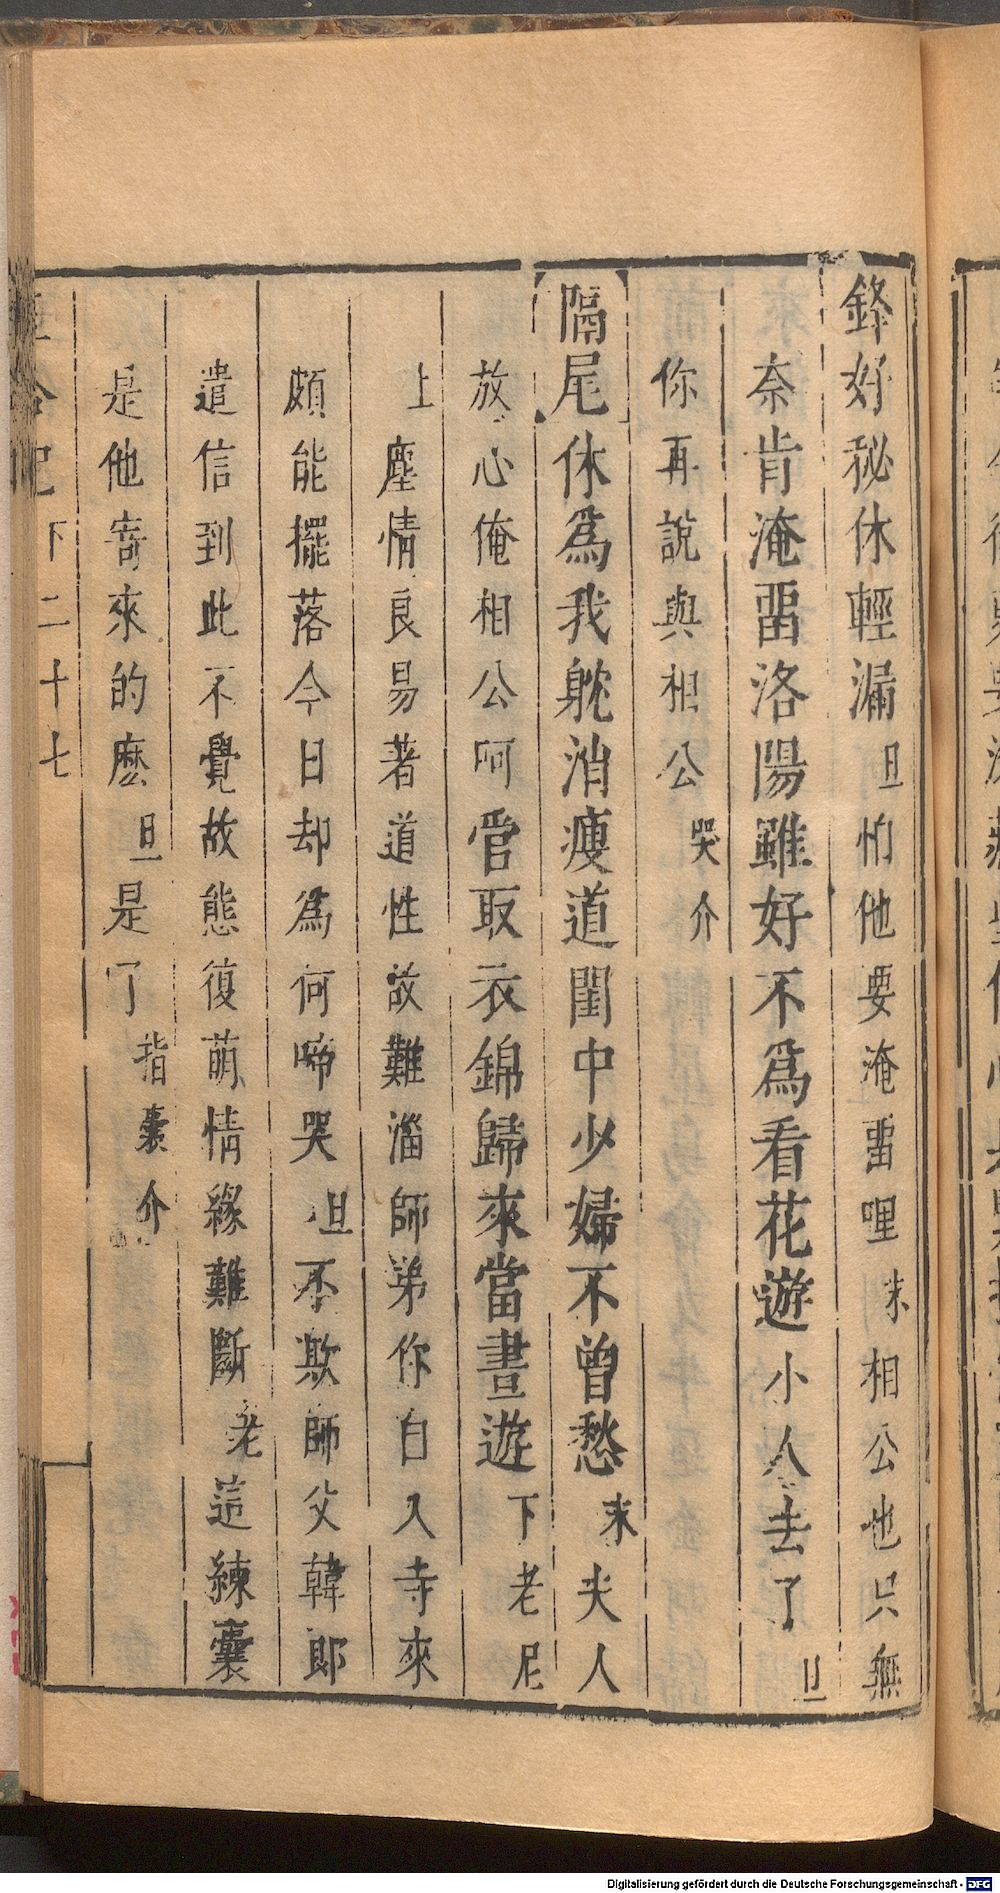 鋒好秘休輕漏旦怕他要淹畱哩末相公也只無
奈肯淹畱洛陽雖好不爲看花遊小人去了旦
你再說與相公哭介
隔尾休爲我躭消瘦道閨中少婦不曾愁末夫人
放心俺相公呵管取衣錦歸來當晝遊下老尼
上塵情良易著道性故難淄師弟你自入寺來
頗能擺落今日却爲何啼哭旦不欺師父韓郎
遣信到此不覺故態復萌情緣難斷老這練囊
是他寄來的麽旦是了指囊介
記 下 二十七
Digitalisierung gefördert durch die Deutsche Forschungsgemeinschaft - DFG